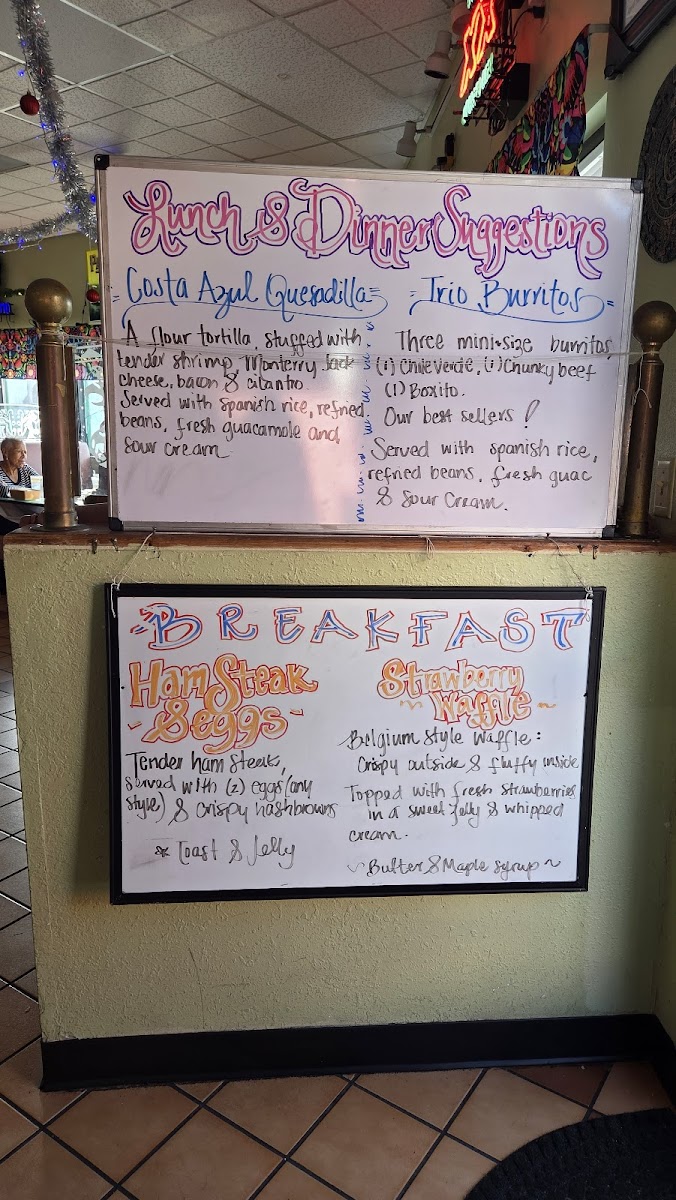 Lunch & Dinner Suggestions
Costa Azul Quesadilla
A flour tortilla, stuffed with
tender shrimp, Monterry Jack
cheese, bacon & cilantro.
Served with spanish rice, refried
beans, fresh guacamole and
sour cream
Trio Burritos
Three mini-size burritos
(1) Chile Verde, (1) Chunky beef
(1) Boxito.
Our best sellers!
Served with spanish rice,
refried beans, fresh guac
& sour cream.
BREAKFAST
Ham Steak
& eggs
Tender ham steak,
served with (2) eggs (any
style) & crispy hashbrowns
* Toast & Jelly
Strawberry
Waffle
Belgium Style Waffle:
Crispy outside & fluffy inside
Topped with fresh strawberries
in a sweet jelly & whipped
cream.
~Butter & Maple syrup~